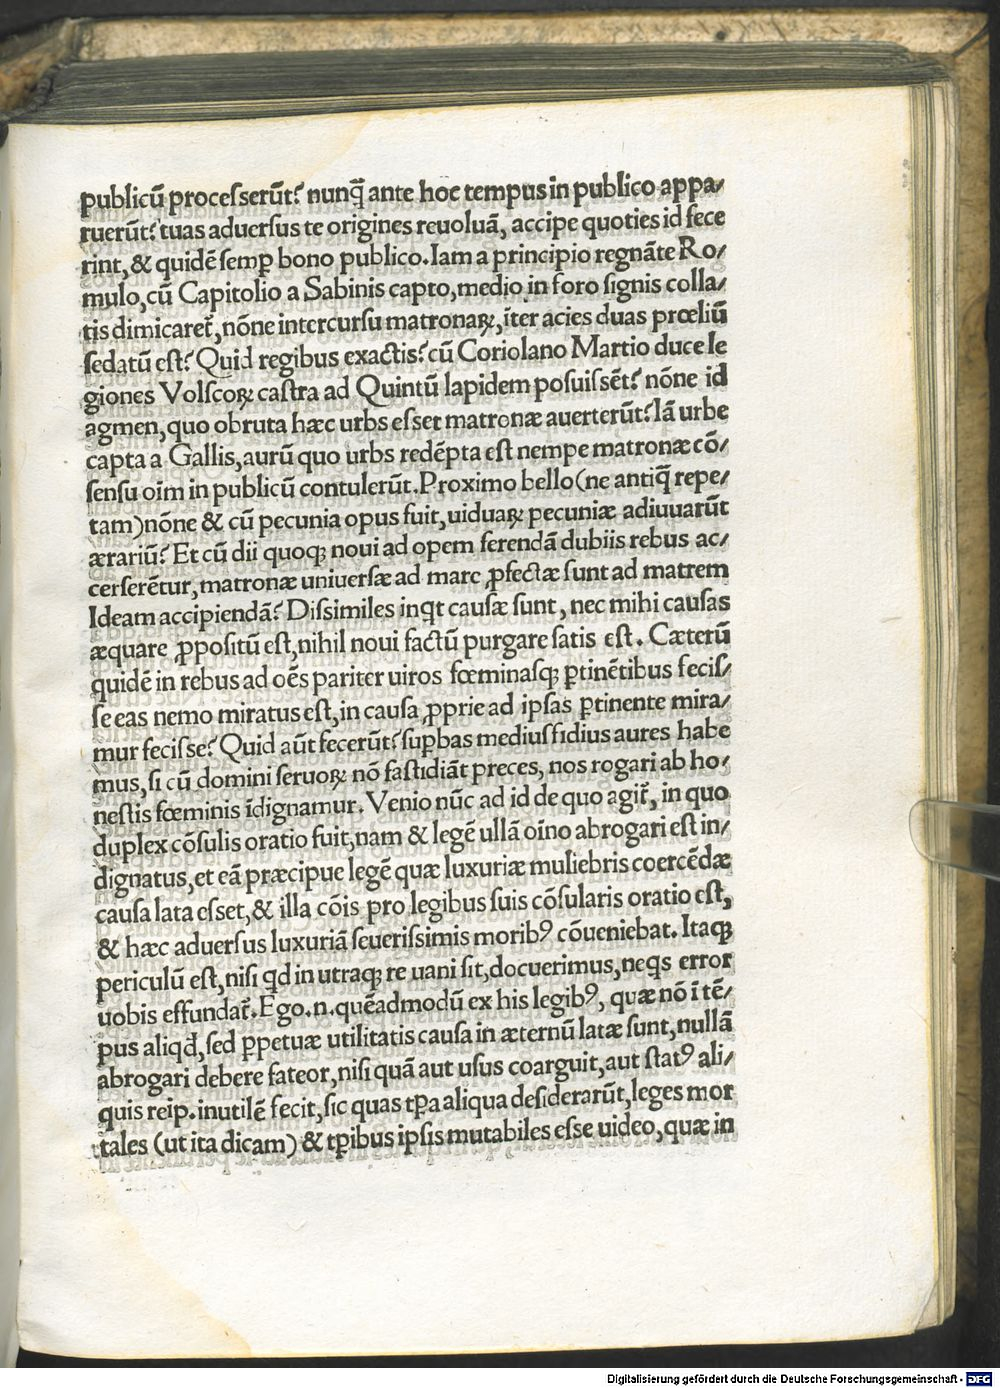 publicū procesſerūt? nunq̄ ante hoc tempus in publico appa/
ruerūt? tuas aduerſus te origines reuoluā, accipe quoties id fece
rint, & quidē ſemꝑ bono publico. Iam a principio regnāte Ro/
mulo, cū Capitolio a Sabinis capto, medio in foro ſignis colla/
tis dimicaret̄, nōne intercurſu matronaꝝ, īter acies duas prœliū
ſedatū eſt? Quid regibus exactis? cū Coriolano Martio duce le
giones Volſcoꝝ caſtra ad Quintū lapidem poſuiſsēt? nōne id
agmen, quo obruta hæc urbs eſset matronæ auerterūt? Iā urbe
capta a Gallis, aurū quo urbs redēpta eſt nempe matronæ cō/
ſenſu oīm in publicū contulerūt. Proximo bello (ne antiq̄ repe/
tam) nōne & cū pecunia opus fuit, uiduaꝝ pecuniæ adiuuarūt
ærariū? Et cū dii quoqꝫ noui ad opem ferendā dubiis rebus ac/
cerſerētur, matronæ uniuerſæ ad mare ꝓfectæ ſunt ad matrem
Ideam accipiendā? Diſsimiles inqt cauſæ ſunt, nec mihi cauſas
æquare ꝓpoſitū eſt, nihil noui factū purgare ſatis eſt. Cæterū
quidē in rebus ad oēs pariter uiros fœminaſqꝫ ꝑtinētibus feciſ/
ſe eas nemo miratus eſt, in cauſa ꝓprie ad ipſas ꝑtinente mira/
mur feciſse? Quid aūt fecerūt? ſuꝑbas mediuſfidius aures habe
mus, ſi cū domini ſeruoꝝ nō faſtidiāt preces, nos rogari ab ho/
neſtis fœminis īdignamur. Venio nūc ad id de quo agit̄, in quo
duplex cōſulis oratio fuit, nam & legē ullā oīno abrogari eſt in/
dignatus, et eā præcipue legē quæ luxuriæ muliebris coercēdæ
cauſa lata eſset, & illa cōis pro legibus ſuis cōſularis oratio eſt,
& hæc aduerſus luxuriā ſeueriſsimis moribꝰ cōueniebat. Itaqꝫ
periculū eſt, niſi qd in utraqꝫ re uani ſit, docuerimus, neqs error
uobis effundat̄. Ego .n. quēadmodū ex his legibꝰ, quæ nō ī tē/
pus aliqd̄, ſed ꝑpetuæ utilitatis cauſa in æternū latæ ſunt, nullā
abrogari debere fateor, niſi quā aut uſus coarguit, aut ſtatꝰ ali/
quis reip. inutilē fecit, ſic quas tꝑa aliqua deſiderarūt, leges mor
tales (ut ita dicam) & tꝑibus ipſis mutabiles eſse uideo, quæ in
Digitalisierung gefördert durch die Deutsche Forschungsgemeinschaft - DFG